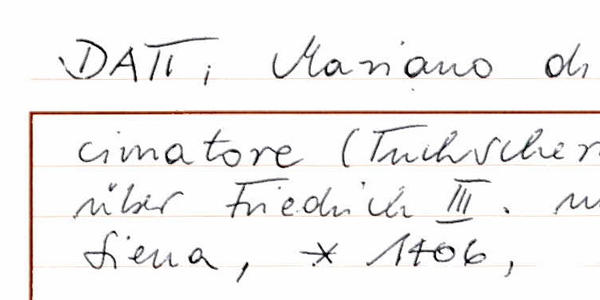 DATI, Mariano di
cimatore (Tuchscher
über Friedrich III. u
Siena, * 1406,